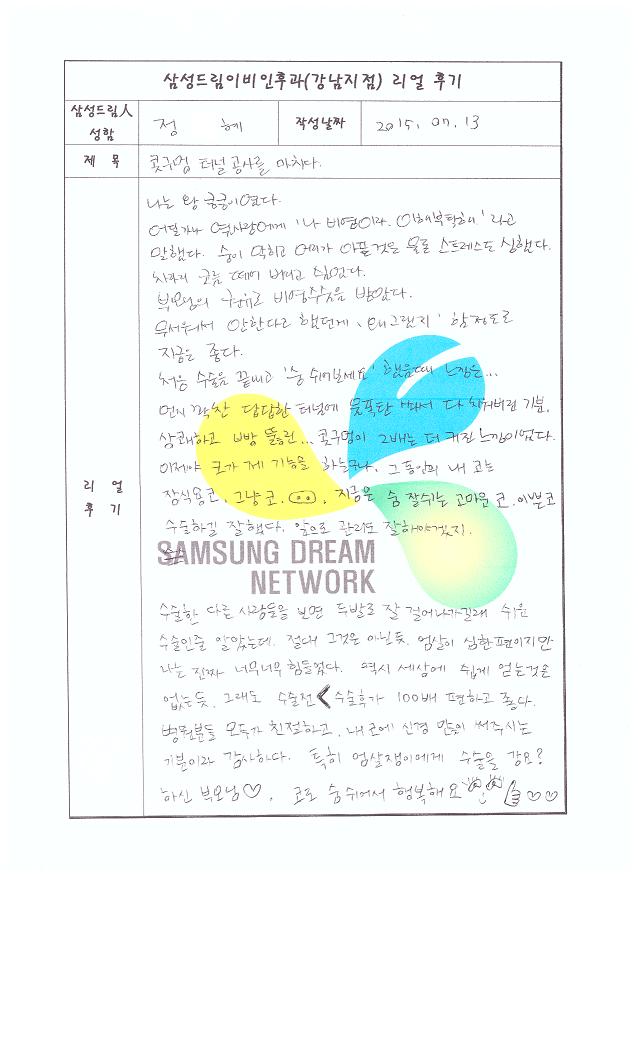 삼성드림이비인후과(강남지점) 리얼 후기
삼성드림人
성함
정 혜
작성날짜
2015. 07. 13
제 목
콧구멍 터널 공사를 마치다.
리 얼
후 기
나는 왕 킁킁이였다.
어딜가나 옆사람에게 '나 비염이라. 이해부탁해' 라고
말했다. 숨이 막히고 머리가 아픈것은 물론 스트레스도 심했다.
차라리 코를 떼어 버리고 싶었다.
부모님의 권유로 비염수술을 받았다.
무서워서 안한다고 했던게, '왜그랬지' 할정도로
지금은 좋다.
처음 수술을 끝내고 '숨 쉬어보세요' 했을때 느낌은...
먼지 꽉찬 답답한 터널에 물폭탄 다 치워버린 기분.
상쾌하고 뻥 뚫린... 콧구멍이 2배는 더 커진 느낌이었다.
이제야 코가 제 기능을 하는구나. 그동안의 내 코는
장식용코, 그냥 코, 지금은 숨 잘쉬는 고마운 코. 이쁜코
수술하길 잘했다. 앞으로 관리도 잘해야겠지.
SAMSUNG DREAM
NETWORK
수술한 다른 사람들을 보면 두발로 잘 걸어나가길래 쉬운
수술인줄 알았는데. 절대 그것은 아닌듯. 엄살이 심한편이지만
나는 진짜 너무너무 힘들었다. 역시 세상에 쉽게 얻는것은
없는듯. 그래도 수술전 < 수술후가 100배 편하고 좋다.
병원분들 모두가 친절하고, 내 코에 신경 많이 써주시는
기분이라 감사하다. 특히 엄살쟁이에게 수술을 강요?
하신 부모님♡. 코로 숨쉬어서 행복해요 ♡♡